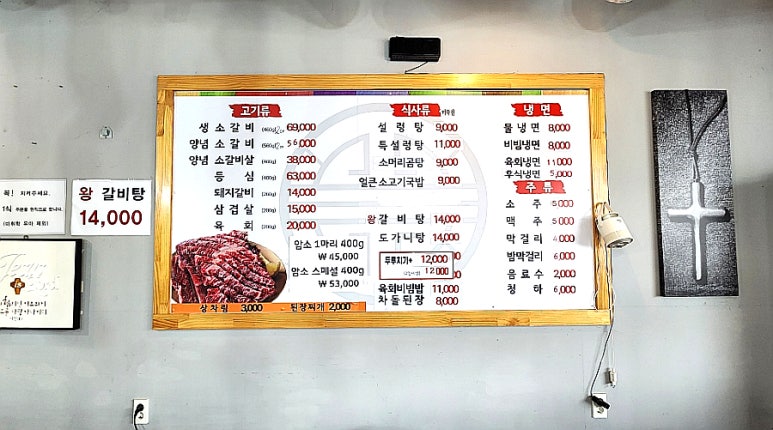 고기류
생 소갈비 69,000
양념 소갈비 56,000
양념 소갈비살 38,000
등심 63,000
돼지갈비 14,000
삼겹살 15,000
육회 20,000
암소 1마리 400g
₩ 45,000
암소 스페셜 400g
₩ 53,000
상차림 3,000 된장찌개 2,000
식사류
설렁탕 9,000
특설렁탕 11,000
소머리곰탕 9,000
얼큰소고기국밥 9,000
왕갈비탕 14,000
도가니탕 14,000
12,000
12000
육회비빔밥 11,000
차돌된장 8,000
냉면
물냉면 8,000
비빔냉면 8,000
육회냉면 11000
후식냉면 5,000
주류
소주 5000
맥주 5000
막걸리 4,000
밤막걸리 6,000
음료수 2,000
청하 6,000
왕 갈비탕
14,000
꼭! 지켜주세요.